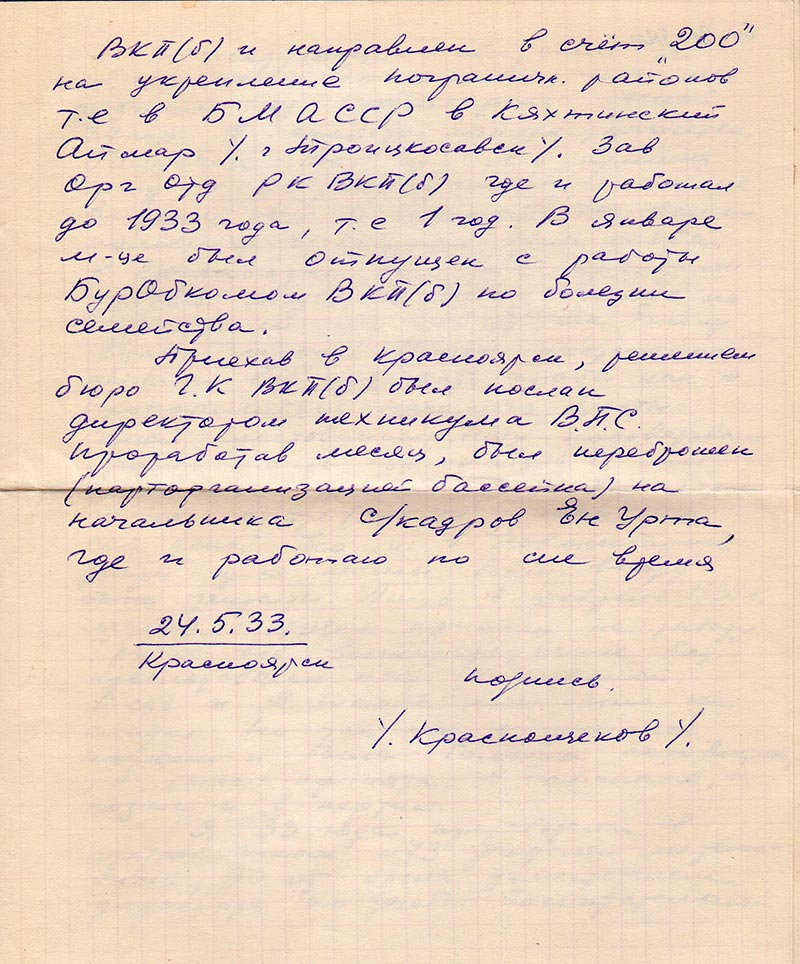 ВКП(б) и направлен в счёт "200"
на укрепление погранич. районов
т.е в БМАССР в Кяхтинский
Аймар /. г Троицкосавск /. Зав
Орг Отд РК ВКП(б) где и работал
до 1933 года, т.е 1 год. В январе
м-це был отпущен с работы
БурОбкомом ВКП(б) по болезни
семейства.
Приехав в Красноярск, решением
бюро Г.К ВКП(б) был послан
директором техникума В.П.С.
Проработав месяц, был переброшен
(парторганизацией бассейна) на
начальника с/кадров Ен Урта,
где и работаю по сие время
24.5.33.
Красноярск
подпись.
/. Краснощеков /.